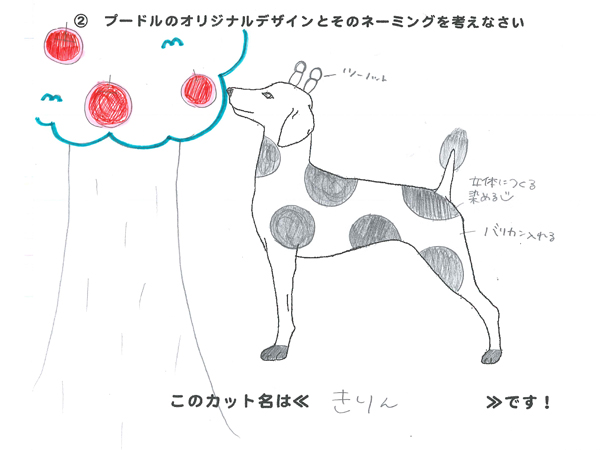 ② プードルのオリジナルデザインとそのネーミングを考えなさい
ツーノット
染める
バリカン入れる
このカット名は≪ きりん ≫です！